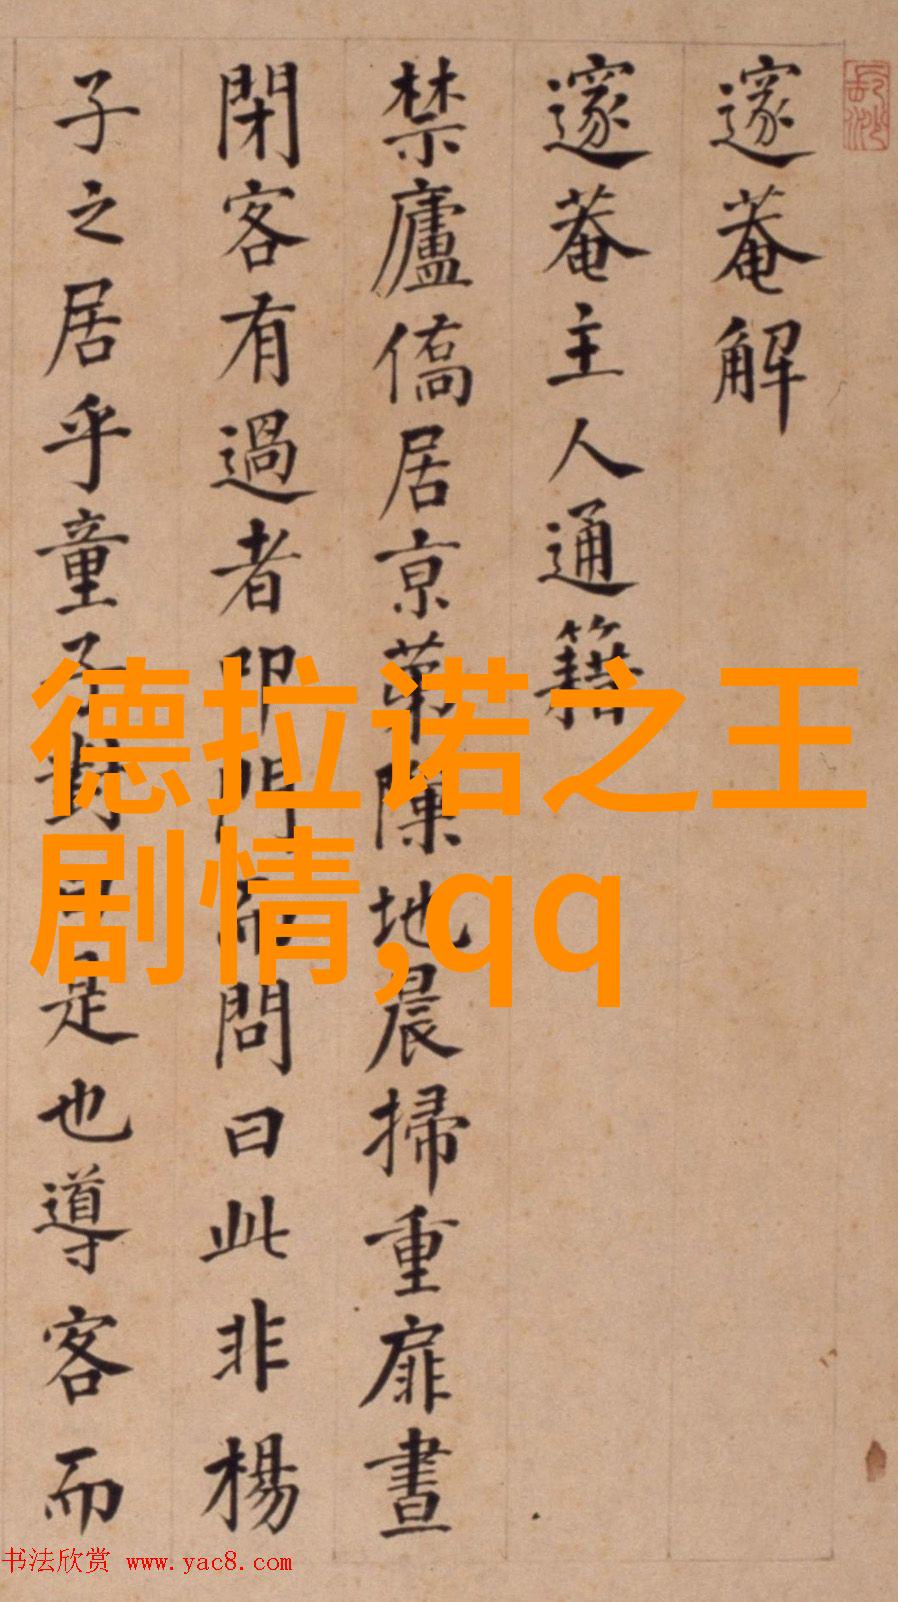 邃菴解
邃菴主人通籍
禁廬僑居京苐隙地晨掃重扉晝
閉客有過者叩門而問曰此非楊
子之居乎童子對曰是也導客而
德拉诺之王
剧情,qq
书法欣赏 www.yac8.com